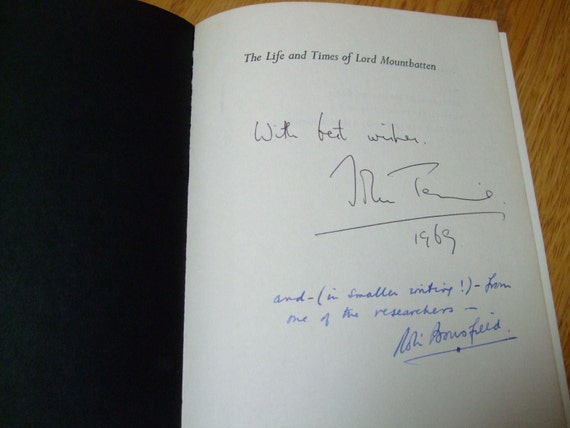 The Life and Times of Lord Mountbatten
With best wishes.
John Terraine.
1969
and - (in smaller writing!) - from
one of the researchers -
Robin Bousfield.